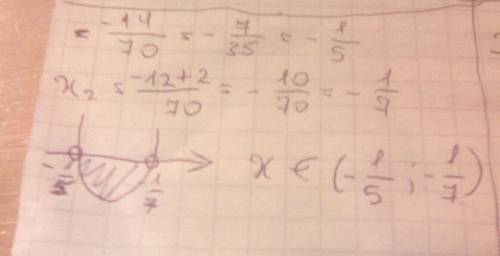 = -14/70 = - 7/35 = - 1/5
x₂ = -12+2/70 = - 10/70 = - 1/7
-1/5 -1/7 x ∈ (- 1/5 ; - 1/7)